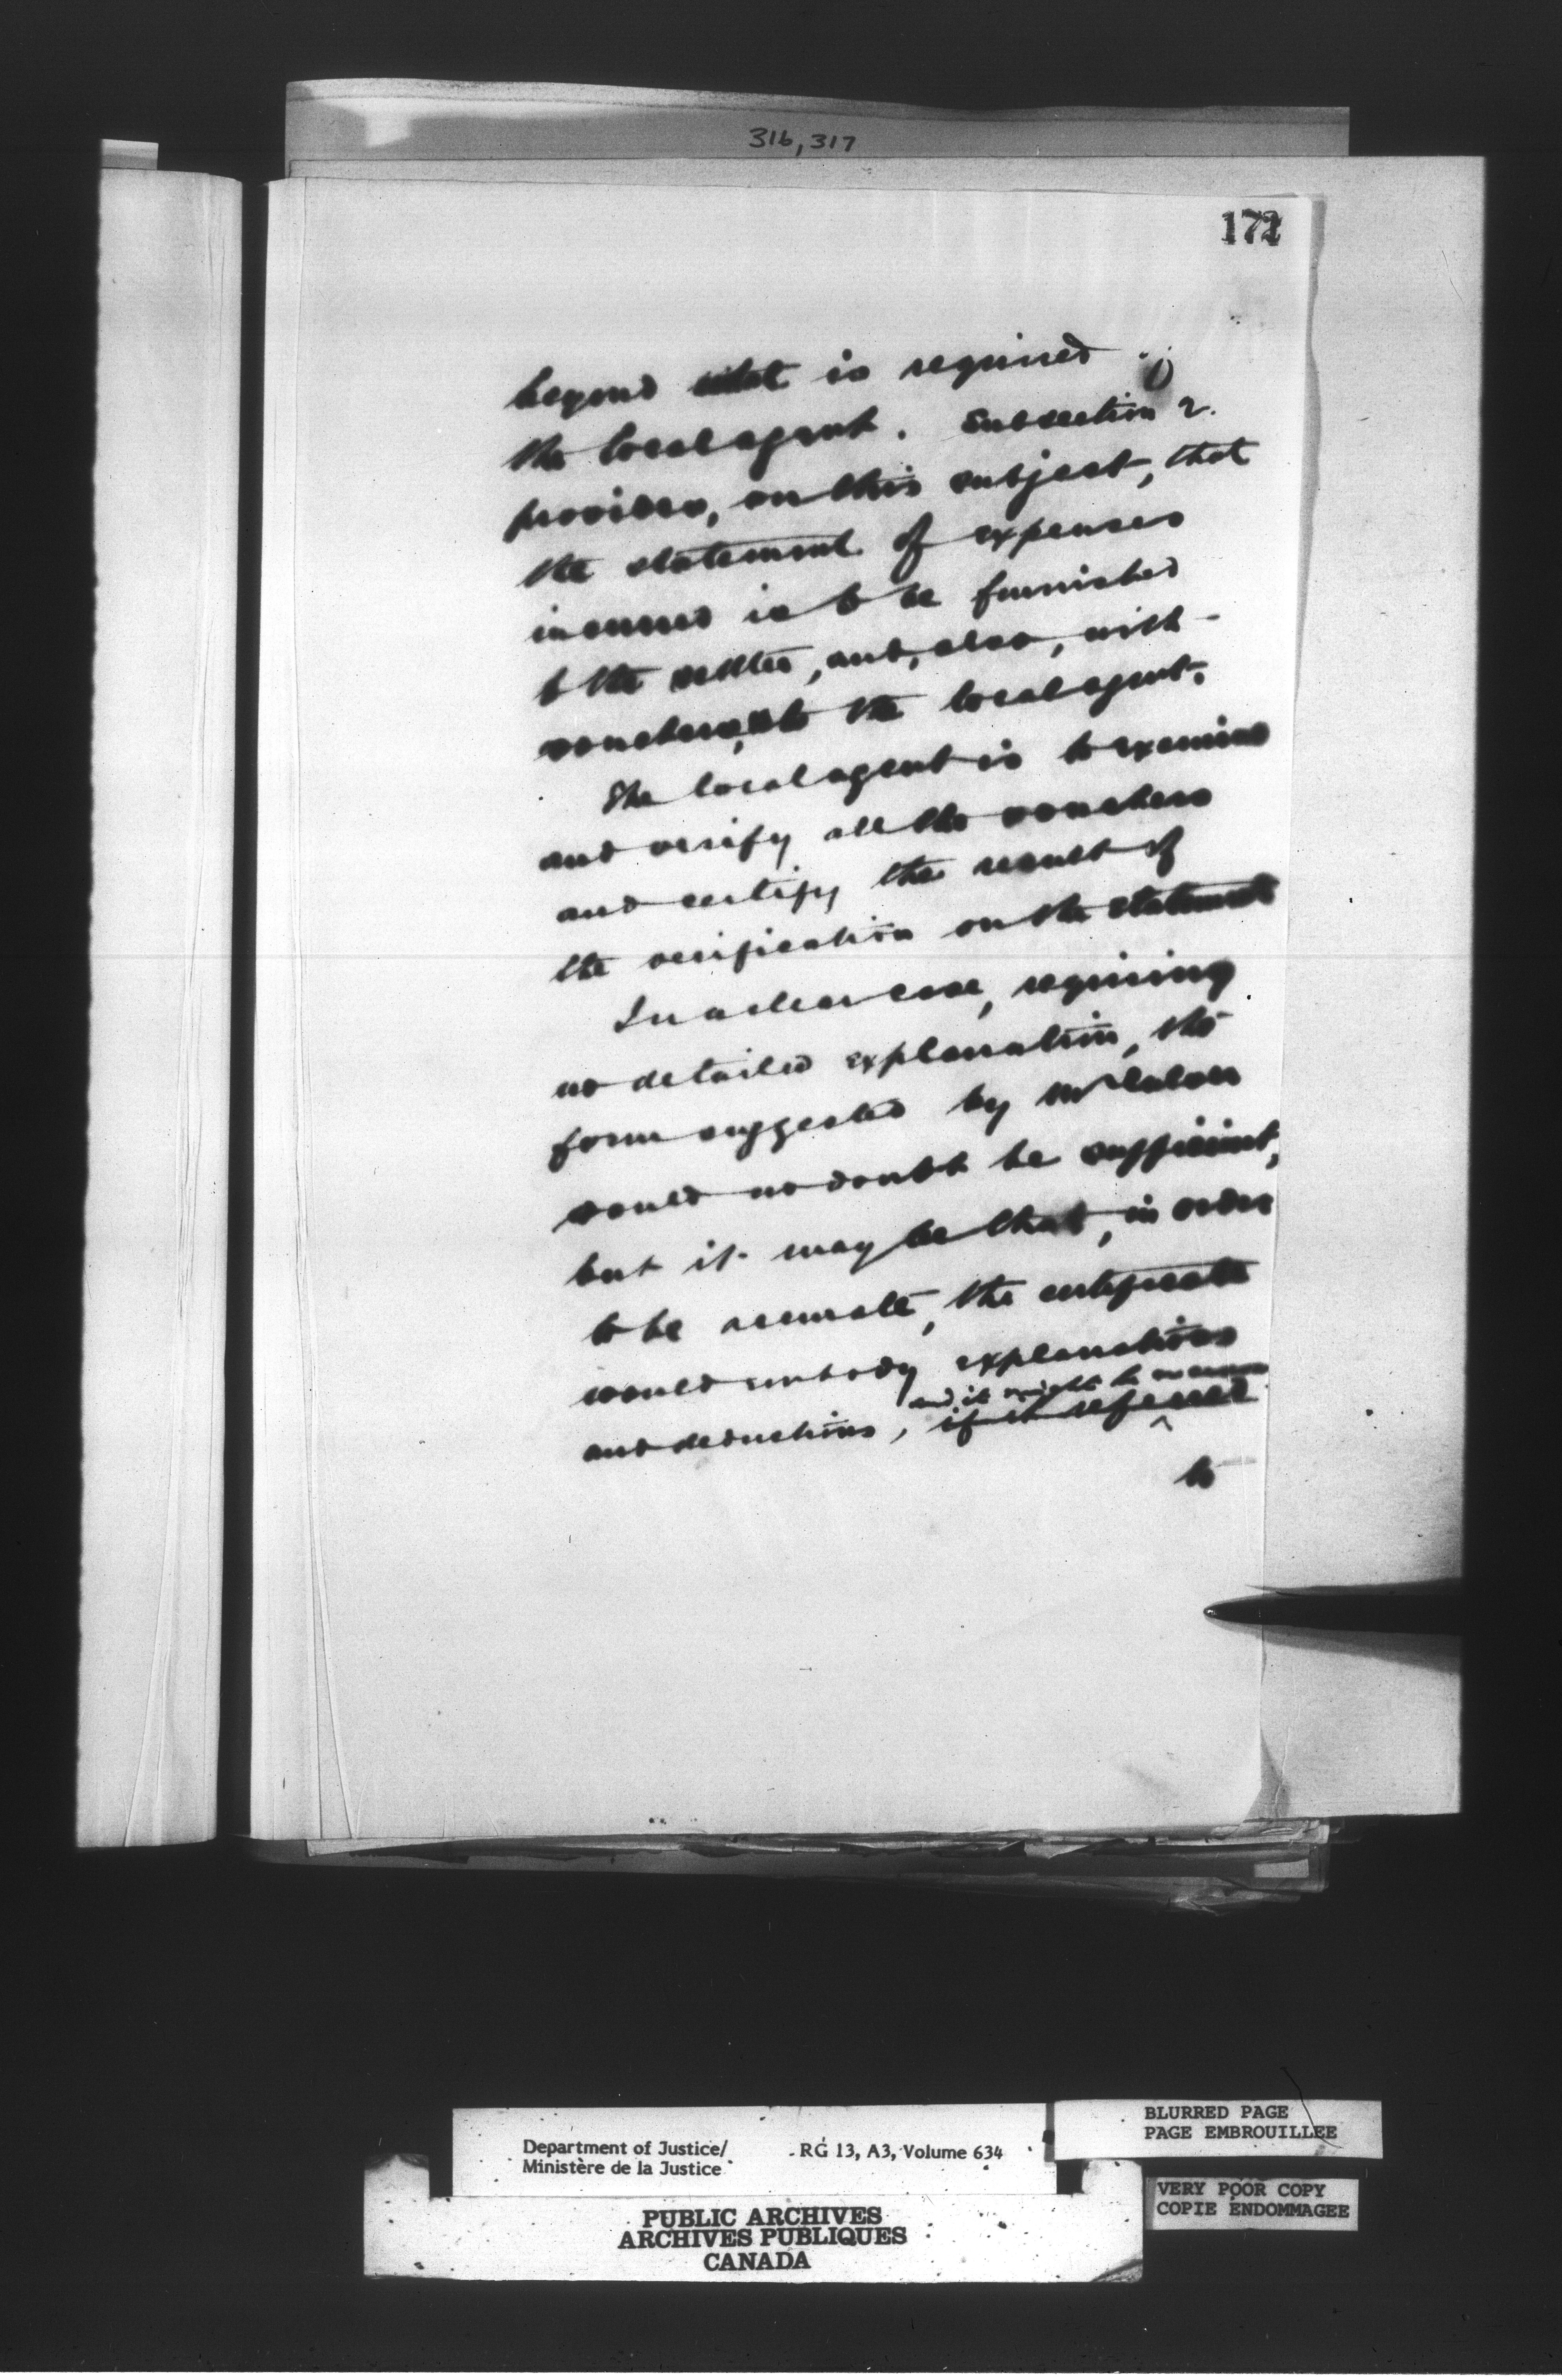 316, 317
172
beyond what is required
the local agent. Subsection 2.
provides, on this subject, that
the statement of expenses
incurred is to be furnished
to the settler, and, also, with
vouchers, to the local agent.
The local agent is to examine
and verify all the vouchers
and certify the result of
the verification on the statement
In a clear case, requiring
no detailed explanation, the
form suggested by Mr
would no doubt be sufficient,
but it may be that, in order
to be accurate, the certificate
would embody explanations
and it might be
and deductions, if it referred
to
Department of Justice/
Ministère de la Justice
RG 13, A3, Volume 634
BLURRED PAGE
PAGE EMBROUILLEE
VERY POOR COPY
COPIE ENDOMMAGEE
PUBLIC ARCHIVES
ARCHIVES PUBLIQUES
CANADA